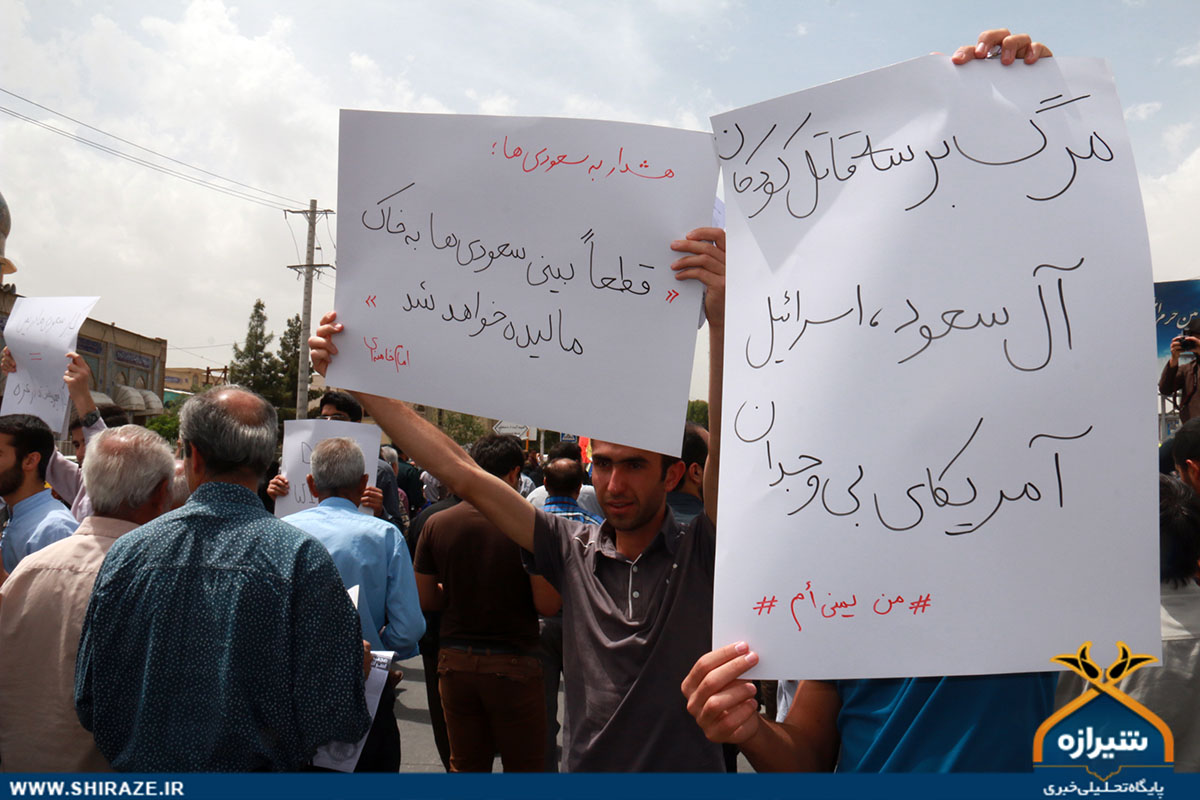 هشدار به سعودی ها؛
« قطعاً بینی سعودی ها به خاک
مالیده خواهد شد »
امام خامنه‌ای
مرگ بر سه قاتل کودکان
آل سعود، اسرائیل
آمریکای بی وجدان
# من یمنی أم #
شیرازه
پایگاه تحلیلی خبری
WWW.SHIRAZE.IR